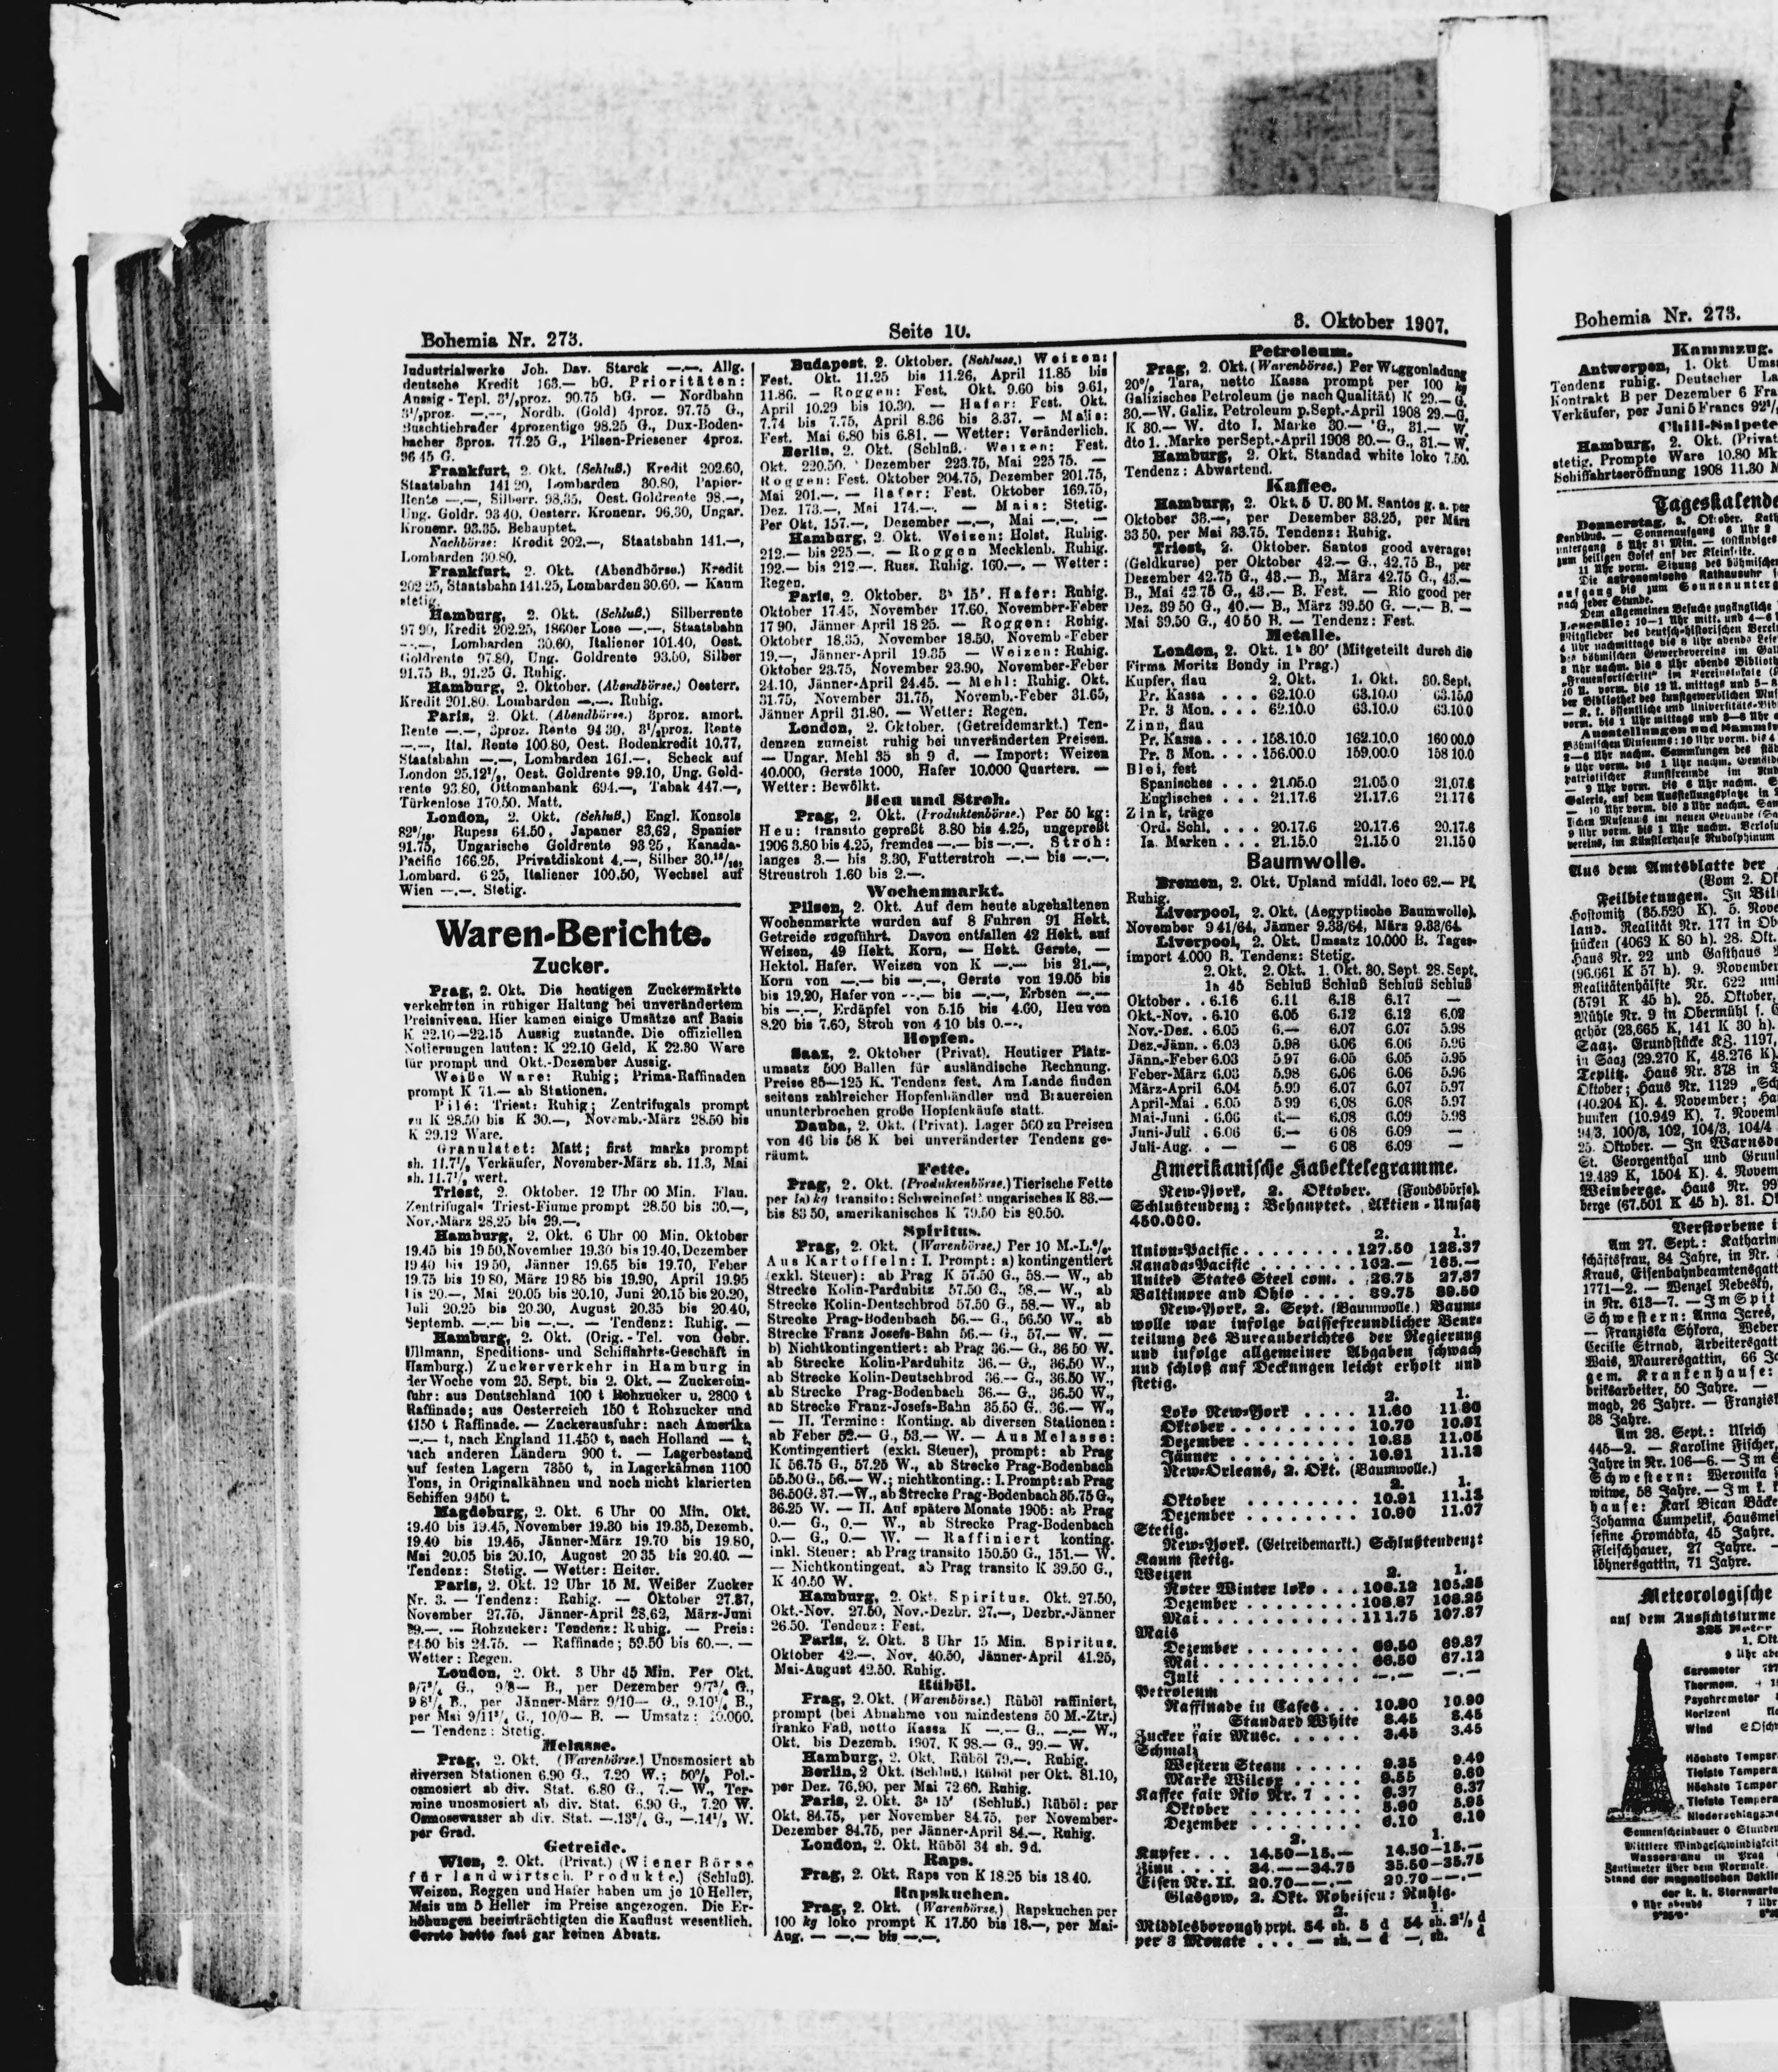 Bohemia Nr. 273.
Seite 10.
3. Oktober 1907.
Industrialwerke Joh. Dav. Starck —.—. Allg.
deutsche Kredit 163.— bG. Prioritäten:
Aussig-Tepl. 3½proz. 90.75 bG. — Nordbahn
3½proz. —.—, Nordb. (Gold) 4proz. 97.75 G.,
Buschtiehrader 4prozentige 98.25 G., Dux-Boden-
bacher 3proz. 77.25 G., Pilsen-Priesener 4proz.
96 45 G.
Frankfurt, 2. Okt. (Schluß.) Kredit 202.60,
Staatsbahn 141 20, Lombarden 30.80, Papier-
Rente —.—, Silberr. 98.35, Oest. Goldrente 98.—,
Ung. Goldr. 93 40, Oesterr. Kronenr. 96.30, Ungar.
Kronenr. 93.35. Behauptet.
Nachbörse: Kredit 202.—, Staatsbahn 141.—,
Lombarden 30.80.
Frankfurt, 2. Okt. (Abendbörse.) Kredit
202 25, Staatsbahn 141.25, Lombarden 30.60. — Kaum
stetig.
Hamburg, 2. Okt. (Schluß.) Silberrente
97 90, Kredit 202.25, 1860er Lose —.—, Staatsbahn
—.—, Lombarden 30.60, Italiener 101.40, Oest.
Goldrente 97.80, Ung. Goldrente 93.50, Silber
91.75 B., 91.25 G. Ruhig.
Hamburg, 2. Oktober. (Abendbörse.) Oesterr.
Kredit 201.80. Lombarden —.—. Ruhig.
Paris, 2. Okt. (Abendbörse.) 3proz. amort.
Rente —.—, 3proz. Rente 94 30, 3½proz. Rente
—.—, Ital. Rente 100.80, Oest. Bodenkredit 10.77,
Staatsbahn —.—, Lombarden 161.—, Scheck auf
London 25.12½, Oest. Goldrente 99.10, Ung. Gold-
rente 93.80, Ottomanbank 694.—, Tabak 447.—,
Türkenlose 170.50. Matt.
London, 2. Okt. (Schluß.) Engl. Konsols
Rupess 64.50, Japaner 83,62, Spanier
91.75, Ungarische Goldrente 93 25, Kanada-
Pacific 166.25, Privatdiskont 4.—, Silber
Lombard. 6 25, Italiener 100.50, Wechsel auf
Wien —.—. Stetig.
Waren-Berichte.
Zucker.
Prag, 2. Okt. Die heutigen Zuckermärkte
verkehrten in ruhiger Haltung bei unverändertem
Preisniveau. Hier kamen einige Umsätze auf Basis
K 22.10—22.15 Aussig zustande. Die offiziellen
Notierungen lauten: K 22.10 Geld, K 22.30 Ware
für prompt und Okt.-Dezember Aussig.
Weiße Ware: Ruhig; Prima-Raffinaden
prompt K 71.— ab Stationen.
Pilé: Triest: Ruhig; Zentrifugals prompt
zu K 28.50 bis K 30.—, Novemb.-März 28.50 bis
K 29.12 Ware.
Granulatet: Matt; first marks prompt
sh. 11.7½ Verkäufer, November-März sh. 11.3, Mai
sh. 11.7½ wert.
Triest, 2. Oktober. 12 Uhr 00 Min. Flau.
Zentrifugals Triest-Fiume prompt 28.50 bis 30.—,
Nov.-März 28.25 bis 29.—.
Hamburg, 2. Okt. 6 Uhr 00 Min. Oktober
19.45 bis 19 50, November 19.30 bis 19.40, Dezember
19 40 bis 19 50, Jänner 19.65 bis 19.70, Feber
19.75 bis 19 80, März 19 85 bis 19.90, April 19.95
bis 20.—, Mai 20.05 bis 20.10, Juni 20.15 bis 20.20,
Juli 20.25 bis 20 30, August 20.35 bis 20.40,
Septemb. —.— bis —.—. — Tendenz: Ruhig. —
Hamburg, 2. Okt. (Orig.-Tel. von Gebr.
Ullmann, Speditions- und Schiffahrts-Geschäft in
Hamburg.) Zuckerverkehr in Hamburg in
der Woche vom 25. Sept. bis 2. Okt. — Zuckerein-
fuhr: aus Deutschland 100 t Rohzucker u. 2800 t
Raffinade; aus Oesterreich 150 t Rohzucker und
4150 t Raffinade. — Zuckerausfuhr: nach Amerika
—.— t, nach England 11.450 t, nach Holland — t,
nach anderen Ländern 900 t. — Lagerbestand
auf festen Lagern 7350 t, in Lagerkähnen 1100
Tons, in Originalkähnen und noch nicht klarierten
Schiffen 9450 t.
Magdeburg, 2. Okt. 6 Uhr 00 Min. Okt.
19.40 bis 19.45, November 19.30 bis 19.35, Dezemb.
19.40 bis 19.45, Jänner-März 19.70 bis 19.80,
Mai 20.05 bis 20.10, August 20 35 bis 20.40. —
Tendenz: Stetig. — Wetter: Heiter.
Paris, 2. Okt. 12 Uhr 15 M. Weißer Zucker
Nr. 3. — Tendenz: Ruhig. — Oktober 27.87,
November 27.75, Jänner-April 28,62, März-Juni
29.—. — Rohzucker: Tendenz: Ruhig. — Preis:
24.50 bis 24.75. — Raffinade; 59.50 bis 60.—. —
Wetter: Regen.
London, 2. Okt. 3 Uhr 45 Min. Per Okt.
9/7¾ G., 9/8— B., per Dezember 9/7¾ G.,
9 8¼ B., per Jänner-März 9/10— G., 9.10¼ B.,
per Mai 9/11¾ G., 10/0— B. — Umsatz:
— Tendenz: Stetig.
Melasse.
Prag, 2. Okt. (Warenbörse.) Unosmosiert ab
diversen Stationen 6.90 G., 7.20 W.; 50% Pol.-
osmosiert ab div. Stat. 6.80 G., 7.— W., Ter-
mine unosmosiert ab div. Stat. 6.90 G., 7.20 W.
Osmosewasser ab div. Stat. —.13¾ G., —.14½ W.
per Grad.
Getreide.
Wien, 2. Okt. (Privat.) (Wiener Börse
für landwirtsch. Produkte.) (Schluß).
Weizen, Roggen und Hafer haben um je 10 Heller,
Mais um 5 Heller im Preise angezogen. Die Er-
höhungen beeinträchtigten die Kauflust wesentlich.
Gerste hatte fast gar keinen Absatz.
Budapest, 2. Oktober. (Schluss.) Weizen:
Fest. Okt. 11.25 bis 11.26, April 11.85 bis
11.86. — Roggen: Fest. Okt. 9.60 bis 9.61,
April 10.29 bis 10.30. — Hafer: Fest. Okt.
7.74 bis 7.75, April 8.36 bis 8.37. — Mais:
Fest. Mai 6.80 bis 6.81. — Wetter: Veränderlich.
Berlin, 2. Okt. (Schluß. Weizen: Fest.
Okt. 220.50. Dezember 223.75, Mai 225 75. —
Roggen: Fest. Oktober 204.75, Dezember 201.75,
Mai 201.—. — Hafer: Fest. Oktober 169.75,
Dez. 173.—, Mai 174.—. — Mais: Stetig.
Per Okt. 157.—, Dezember —.—, Mai —.—. —
Hamburg, 2. Okt. Weizen: Holst. Ruhig.
212.— bis 225.—. — Roggen Mecklenb. Ruhig.
192.— bis 212.—. Russ. Ruhig. 160.—. — Wetter:
Regen.
Paris, 2. Oktober. 3h 15'. Hafer: Ruhig.
Oktober 17.45, November 17.60, November-Feber
17 90, Jänner April 18 25. — Roggen: Ruhig.
Oktober 18.35, November 18.50, Novemb-Feber
19.—, Jänner-April 19.35 — Weizen: Ruhig.
Oktober 23.75, November 23.90, November-Feber
24.10, Jänner-April 24.45. — Mehl: Ruhig. Okt.
31.75, November 31.75, Novemb.-Feber 31.65,
Jänner April 31.80. — Wetter: Regen.
London, 2. Oktober. (Getreidemarkt.) Ten-
denzen zumeist ruhig bei unveränderten Preisen.
— Ungar. Mehl 35 sh 9 d. — Import: Weizen
40.000, Gerste 1000, Hafer 10.000 Quarters. —
Wetter: Bewölkt.
Heu und Stroh.
Prag, 2. Okt. (Produktenbörse.) Per 50 kg:
Heu: transito gepreßt 3.80 bis 4.25, ungepreßt
1906 3.80 bis 4.25, fremdes —.— bis —.—. Stroh:
langes 3.— bis 3.30, Futterstroh —.— bis —.—.
Streustroh 1.60 bis 2.—.
Wochenmarkt.
Pilsen, 2. Okt. Auf dem heute abgehaltenen
Wochenmarkte wurden auf 8 Fuhren 91 Hekt.
Getreide zugeführt. Davon entfallen 42 Hekt. auf
Weizen, 49 Hekt. Korn, — Hekt. Gerste, —
Hektol. Hafer. Weizen von K —.— bis 21.—,
Korn von —.— bis —.—, Gerste von 19.05 bis
bis 19.20, Hafer von —.— bis —.—, Erbsen —.—
bis —.—, Erdäpfel von 5.15 bis 4.60, Heu von
8.20 bis 7.60, Stroh von 4 10 bis 0.—.
Hopfen.
Saaz, 2. Oktober (Privat). Heutiger Platz-
umsatz 500 Ballen für ausländische Rechnung.
Preise 85—125 K. Tendenz fest. Am Lande finden
seitens zahlreicher Hopfenhändler und Brauereien
ununterbrochen große Hopfenkäufe statt.
Dauba, 2. Okt. (Privat). Lager 560 zu Preisen
von 46 bis 58 K bei unveränderter Tendenz ge-
räumt.
Fette.
Prag, 2. Okt. (Produktenbörse.) Tierische Fette
per kg transito: Schweinefett ungarisches K 83.—
bis 83 50, amerikanisches K 79.50 bis 80.50.
Spiritus.
Prag, 2. Okt. (Warenbörse.) Per 10 M.-L.%.
Aus Kartoffeln: I. Prompt: a) kontingentiert
(exkl. Steuer): ab Prag K 57.50 G., 58.— W., ab
Strecke Kolin-Pardubitz 57.50 G., 58.— W., ab
Strecke Kolin-Deutschbrod 57.50 G., 58.— W., ab
Strecke Prag-Bodenbach 56.— G., 56.50 W., ab
Strecke Franz Josefs-Bahn 56.— G., 57.— W. —
b) Nichtkontingentiert: ab Prag 36.— G., 36 50 W.
ab Strecke Kolin-Pardubitz 36.— G., 36.50 W.,
ab Strecke Kolin-Deutschbrod 36.— G., 36.50 W.,
ab Strecke Prag-Bodenbach 36.— G., 36.50 W.,
ab Strecke Franz-Josefs-Bahn 35.50 G., 36.— W.,
— II. Termine: Konting. ab diversen Stationen:
ab Feber 52.— G., 53.— W. — Aus Melasse:
Kontingentiert (exkl. Steuer), prompt: ab Prag
K 56.75 G., 57.25 W., ab Strecke Prag-Bodenbach
55.50 G., 56.— W.; nichtkonting.: I. Prompt: ab Prag
36.50G. 37.—W., ab Strecke Prag-Bodenbach 35.75 G.,
36.25 W. — II. Auf spätere Monate 1905: ab Prag
0.— G., 0.— W., ab Strecke Prag-Bodenbach
0.— G., 0.— W. — Raffiniert konting.
inkl. Steuer: ab Prag transito 150.50 G., 151.— W.
— Nichtkontingent. ab Prag transito K 39.50 G.,
K 40.50 W.
Hamburg, 2. Okt. Spiritus. Okt. 27.50,
Okt.-Nov. 27.50, Nov.-Dezbr. 27.—, Dezbr.-Jänner
26.50. Tendenz: Fest.
Paris, 2. Okt. 3 Uhr 15 Min. Spiritus.
Oktober 42.—, Nov. 40.50, Jänner-April 41.25,
Mai-August 42.50. Ruhig.
Rüböl.
Prag, 2. Okt. (Warenbörse.) Rüböl raffiniert,
prompt (bei Abnahme von mindestens 50 M.-Ztr.)
franko Faß, netto Kassa K —.— G., —.— W.,
Okt. bis Dezemb. 1907. K 98.— G., 99.— W.
Hamburg, 2. Okt. Rüböl 79.—. Ruhig.
Berlin, 2 Okt. (Schluß.) Rüböl per Okt. 81.10,
per Dez. 76.90, per Mai 72.60. Ruhig.
Paris, 2. Okt. 3h 15' (Schluß.) Rüböl: per
Okt. 84.75, per November 84.75, per November-
Dezember 84.75, per Jänner-April 84.—. Ruhig.
London, 2. Okt. Rüböl 34 sh. 9d.
Raps.
Prag, 2. Okt. Raps von K 18.25 bis 18.40.
Rapskuchen.
Prag, 2. Okt. (Warenbörse.) Rapskuchen per
100 kg loko prompt K 17.50 bis 18.—, per Mai-
Aug. — —.— bis —.—.
Petroleum.
Prag, 2. Okt. (Warenbörse.) Per Waggonladung
20% Tara, netto Kassa prompt per 100 kg
Galizisches Petroleum (je nach Qualität) K 29.— G.
30.—W. Galiz. Petroleum p.Sept.-April 1908 29.—G.
K 30.— W. dto I. Marke 30.— G., 31.— W.
dto 1. Marke per Sept.-April 1908 30.— G., 31.— W.
Hamburg, 2. Okt. Standad white loko 7.50.
Tendenz: Abwartend.
Kaffee.
Hamburg, 2. Okt. 5 U. 30 M. Santos g. a. per
Oktober 33.—, per Dezember 33.25, per März
33 50, per Mai 33.75. Tendenz: Ruhig.
Triest, 2. Oktober. Santos good average:
(Geldkurse) per Oktober 42.— G., 42.75 B., per
Dezember 42.75 G., 43.— B., März 42.75 G., 43.—
B., Mai 42.75 G., 43.— B. Fest. — Rio good per
Dez. 39 50 G., 40.— B., März 39.50 G. —.— B. —
Mai 39.50 G., 40 50 B. — Tendenz: Fest.
Metalle.
London, 2. Okt. 1h 30' (Mitgeteilt durch die
Firma Moritz Bondy in Prag.)
Kupfer, flau 2. Okt. 1. Okt. 30. Sept.
Pr. Kassa . . . 62.10.0 63.10.0 63.15.0
Pr. 3 Mon. . . . 62.10.0 63.10.0 63.10.0
Zinn, flau
Pr. Kassa . . . . 158.10.0 162.10.0 160 00.0
Pr. 3 Mon. . . . 156.00.0 159.00.0 158 10.0
Blei, fest
Spanisches . . . 21.05.0 21.05 0 21.07.6
Englisches . . . 21.17.6 21.17.6 21 17 6
Zink, träge
Ord. Schl. . . . 20.17.6 20.17.6 20.17.6
Ia. Marken . . . 21.15.0 21.15 0 21.15 0
Baumwolle.
Bremen, 2. Okt. Upland middl. loco 62.— Pf.
Ruhig.
Liverpool, 2. Okt. (Aegyptische Baumwolle).
November 9 41/64, Jänner 9.33/64, März 9.33/64.
Liverpool, 2. Okt. Umsatz 10.000 B. Tages-
import 4.000 B. Tendenz: Stetig.
2. Okt. 2. Okt. 1. Okt. 30. Sept. 28. Sept.
1h 45 Schluß Schluß Schluß Schluß
Oktober . . 6.16 6.11 6.18 6.17 —
Okt.-Nov. . 6.10 6.05 6.12 6.12 6.02
Nov.-Dez. . 6.05 6.— 6.07 6.07 5.98
Dez.-Jänn. . 6.03 5.98 6.06 6.06 5.96
Jänn.-Feber 6.03 5.97 6.05 6.05 5.95
Feber-März 6.03 5.98 6.06 6.06 5.96
März-April 6.04 5.99 6.07 6.07 5.97
April-Mai . 6.05 5 99 6.08 6.08 5.97
Mai-Juni . 6.06 6.— 6.08 6.09 5.98
Juni-Juli . 6.06 6.— 6 08 6.09 —
Juli-Aug. . — — 6 08 6.09 —
Amerikanische Kabeltelegramme.
New-York, 2. Oktober. (Fondsbörse).
Schlußtendenz: Behauptet. Aktien-Umsatz
450.000.
2. 1.
Union-Pacific . . . . . . . . 127.50 128.37
Kanada-Pacific . . . . . . . 162.— 165.—
United States Steel com. . 26.75 27.37
Baltimore and Ohio . . . . 89.75 89.50
New-York, 2. Sept. (Baumwolle.) Baum-
wolle war infolge baissefreundlicher Beur-
teilung des Bureauberichtes der Regierung
und infolge allgemeiner Abgaben schwach
und schloß auf Deckungen leicht erholt und
stetig.
2. 1.
Loko New-York . . . . 11.60 11 80
Oktober . . . . . . . . 10.70 10.91
Dezember . . . . . . . 10.85 11.05
Jänner . . . . . . . . 10.91 11.13
New-Orleans, 2. Okt. (Baumwolle.)
2. 1.
Oktober . . . . . . . . 10.91 11.13
Dezember . . . . . . . 10.90 11.07
Stetig.
New-York. (Getreidemarkt.) Schlußtendenz:
Kaum stetig.
Weizen 2. 1.
Roter Winter loko . . . 106.12 105.25
Dezember . . . . . . . 108.87 108.25
Mai . . . . . . . . . 111.75 107.87
Mais
Dezember . . . . . . . 69.50 69.37
Mai . . . . . . . . . 66.50 67.12
Juli . . . . . . . . . —.— —.—
Petroleum
Raffinade in Cases . . . 10.90 10.90
„ Standard White 8.45 8.45
Zucker fair Musc. . . . . . 3.45 3.45
Schmalz
Western Steam . . . . . 9.35 9.40
Marke Wilcox . . . . . 9.55 9.60
Kaffee fair Rio Nr. 7 . . . 6.37 6.37
Oktober . . . . . . . . 5.90 5.95
Dezember . . . . . . . 6.10 6.10
2. 1.
Kupfer . . . 14.50—15.— 14.50—15.—
Zinn . . . . 34.——34.75 35.50—35.75
Eisen Nr. II. 20.70—.— 20.70—.—
Glasgow, 2. Okt. Roheisen: Ruhig.
2. 1.
Middlesborough prpt. 54 sh. 5 d 54 sh. 2½ d
per 3 Monate . . . — sh. — d —, sh. d
Bohemia Nr. 273.
Kammzug.
Antwerpen, 1. Okt. Ums
Tendenz ruhig. Deutscher La
Kontrakt B per Dezember 6 Fra
Verkäufer, per Juni 5 Francs
Chili-Salpete
Hamburg, 2. Okt. (Privat
stetig. Prompte Ware 10.80 Mk
Schiffahrtseröffnung 1908 11.30 M
Tageskalende
Donnerstag, 3. Oktober.
11 Uhr vorm. Sitzung des böhmische
Die astronomische Rathausuhr
aufgang bis zum Sonnenunter
nach jeder Stunde.
Dem allgemeinen Besuche zugängliche
Aus dem Amtsblatte der
(Vom 2. Ok
Feilbietungen. In Bil
Hostomitz (85.520 K). 5. Nove
land. Realität Nr. 177 in Ob
stücken (4063 K 80 h). 28. Okt.
Haus Nr. 22 und Gasthaus
(96.661 K 57 h). 9. November
Realitätenhälfte Nr. 622 und
(5791 K 45 h). 25. Oktober,
Mühle Nr. 9 in Obermühl f. G
gehör (28,665 K, 141 K 30 h).
Saaz. Grundstücke KZ. 1197,
in Saaz (29.270 K, 48.276 K)
Teplitz. Haus Nr. 378 in
Oktober; Haus Nr. 1129 „Sch
(40.204 K). 4. November; Ha
bunken (10.949 K), 7. Novem
94/3, 100/3, 102, 104/3, 104/4
25. Oktober. — In Warnsdo
St. Georgenthal und Grun
12.439 K, 1504 K). 4. Novem
Weinberge. Haus Nr. 99
berge (67.501 K 45 h). 31. Ok
Verstorbene i
Am 27. Sept.: Katharin
schäftsfrau, 84 Jahre, in Nr.
Kraus, Eisenbahnbeamtensgatt
1771—2. — Wenzel Rebesky,
in Nr. 613—7. — Im Spit
Schwestern: Anna Jares,
— Franziska Sykora, Weber
Cecilie Strnad, Arbeitersgatt
Wais, Maurersgattin, 66 Ja
gem. Krankenhause:
briksarbeiter, 50 Jahre. —
magd, 26 Jahre. — Franzisk
38 Jahre.
Am 28. Sept.: Ulrich
445—2. — Karoline Fischer,
Jahre in Nr. 106—6. — Im S
Schwestern: Veronika
witwe, 58 Jahre. — Im k. k
hause: Karl Bican Bäcke
Johanna Cumpelik, Hausmei
sefine Hromádka, 45 Jahre.
Fleischhauer, 27 Jahre. —
löhnersgattin, 71 Jahre.
Meteorologische
auf dem Aussichtsturme
325 Meter
1. Okt
9 Uhr abe
Barometer
Thermom.
Psychrometer
Horizont
Wind
Höchste Tempera
Tiefste Tempera
Höchste Temper
Tiefste Tempera
Niederschlagsme
Sonnenscheindauer 0 Stunden
Mittlere Windgeschwindigkeit
Wasserstand in Prag
Zentimeter über dem Normale.
Stand der magnetischen Dekli
der k. k. Sternwarte
9 Uhr abends 7 Uhr